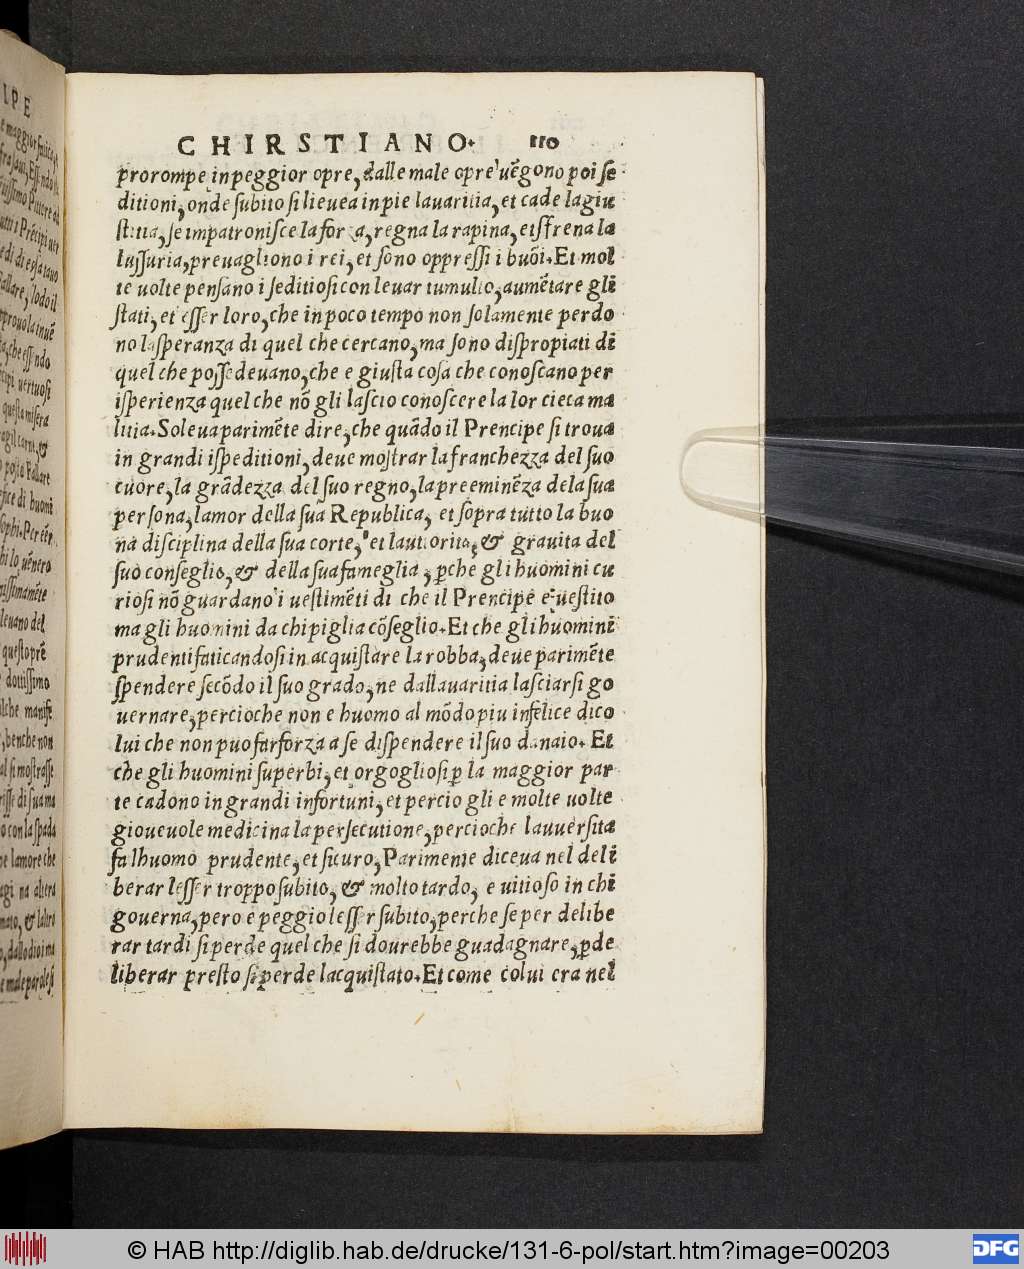 CHIRSTIANO. 110
prorompe in peggior opre, dalle male opre uẽgono poi se
ditioni, onde subito si lieue a in pie lauaritia, et cade la giu
stitia, se impatronisce la forza, regna la rapina, et sfrena la
lussuria, preuagliono i rei, et sono oppressi i buõi. Et mol
te uolte pensano i seditiosi con leuar tumulto, aumẽtare gli
stati, et esser loro, che in poco tempo non solamente perdo
no la speranza di quel che cercano, ma sono dispropiati di
quel che possedeuano, che e giusta cosa che conoscano per
isperienza quel che nõ gli lascio conoscere la lor cieca ma
litia. Soleua parimẽte dire, che quãdo il Prencipe si troua
in grandi ispeditioni, deue mostrar la franchezza del suo
cuore, la grãdezza del suo regno, la preeminẽza dela sua
persona, lamor della sua Republica, et sopra tutto la buo
na disciplina della sua corte, et lautorita, & grauita del
suo conseglio, & della sua fameglia, ꝑche gli huomini cu
riosi nõ guardano i uestimẽti di che il Prencipe e uestito
ma gli huomini da chi piglia cõseglio. Et che gli huomini
prudenti faticandosi in acquistare la robba, deue parimẽte
spendere secõdo il suo grado, ne dallauaritia lasciarsi go
uernare, percioche non e huomo al mõdo piu infelice di co
lui che non puo far forza a se di spendere il suo danaio. Et
che gli huomini superbi, et orgogliosi ꝑ la maggior par
te cadono in grandi infortuni, et percio gli e molte uolte
gioueuole medicina la persecutione, percioche lauuersita
fa lhuomo prudente, et sicuro, Parimente diceua nel deli
berar lesser troppo subito, & molto tardo, e uitioso in chi
gouerna, pero e peggio lesser subito, perche se per delibe
rar tardi si perde quel che si dourebbe guadagnare, ꝑ de
liberar presto si perde lacquistato. Et come colui era nel
© HAB http://diglib.hab.de/drucke/131-6-pol/start.htm?image=00203
DFG